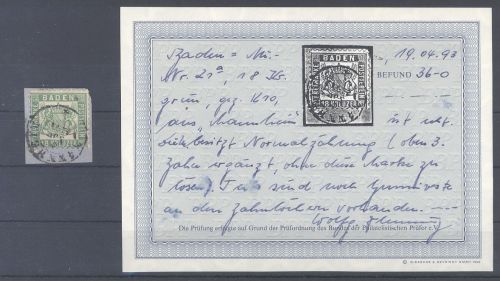 BADEN
FREIMARKE
18 KREUZER
Baden = Mi.-
19.04.93
Nr. 21ᵃ, 18 Kr.
BEFUND 36-0
grün, gez. K10,
aus "Mannheim" ist echt.
besitzt Normalzähnung (oben 3
Zähne ergänzt, ohne diese Marke zu
lösen). sind noch Gummireste
an den Zahnlöchern vorhanden.
Die Prüfung erfolgte auf Grund der Prüfordnung des Bundes der Philatelistischen Prüfer e.V.